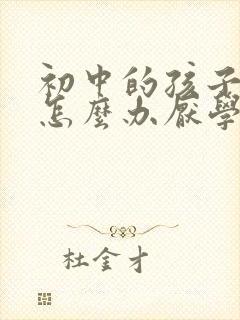 初中的孩子
怎麼办厌學
杜金才